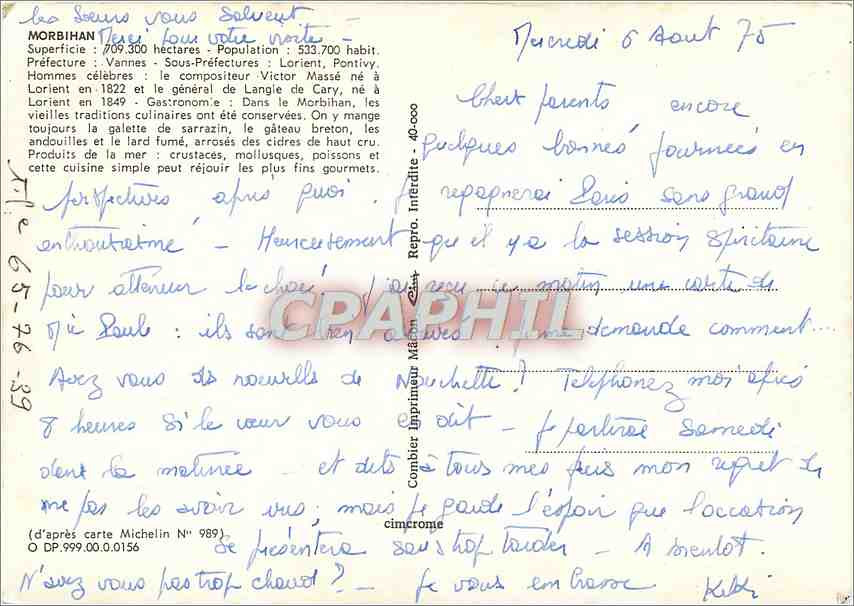 les Soeurs vous saluent -
Merci pour votre visite -
MORBIHAN
Superficie : 709.300 hectares - Population : 533.700 habit.
Préfecture : Vannes - Sous-Préfectures : Lorient, Pontivy.
Hommes célèbres : le compositeur Victor Massé né à
Lorient en 1822 et le général de Langle de Cary, né à
Lorient en 1849 - Gastronomie : Dans le Morbihan, les
vieilles traditions culinaires ont été conservées. On y mange
toujours la galette de sarrazin, le gâteau breton, les
andouilles et le lard fumé, arrosés des cidres de haut cru.
Produits de la mer : crustacés, mollusques, poissons et
cette cuisine simple peut réjouir les plus fins gourmets.
Mercredi 6 Aout 75
Chers parents, encore
quelques bonnes journées en
perspectives, après quoi je regagnerai Paris sans grand
enthousiasme - Heureusement que il y a la session
pour atténuer le choc ! J'ai reçu ce matin une carte de
Mie Paule : ils sont bien arrivés. Je me demande comment....
Avez vous des nouvelles de Nouchette ? Telephonez moi après
8 heures si le coeur vous en dit - Je partirai Samedi
dans la matinée - et dites à tous mes regret de
ne pas les avoir vus ; mais je garde l'espoir que l'occasion
se présentera sans trop tarder - A bientot.
N'avez vous pas trop chaud ? - Je vous embrasse Kiki
65-76-39
Combier Imprimeur Mâcon Cim Repro. Interdite - 40-000
cimcrome
(d'après carte Michelin N° 989)
O DP.999.00.0.0156
CPAPHIL